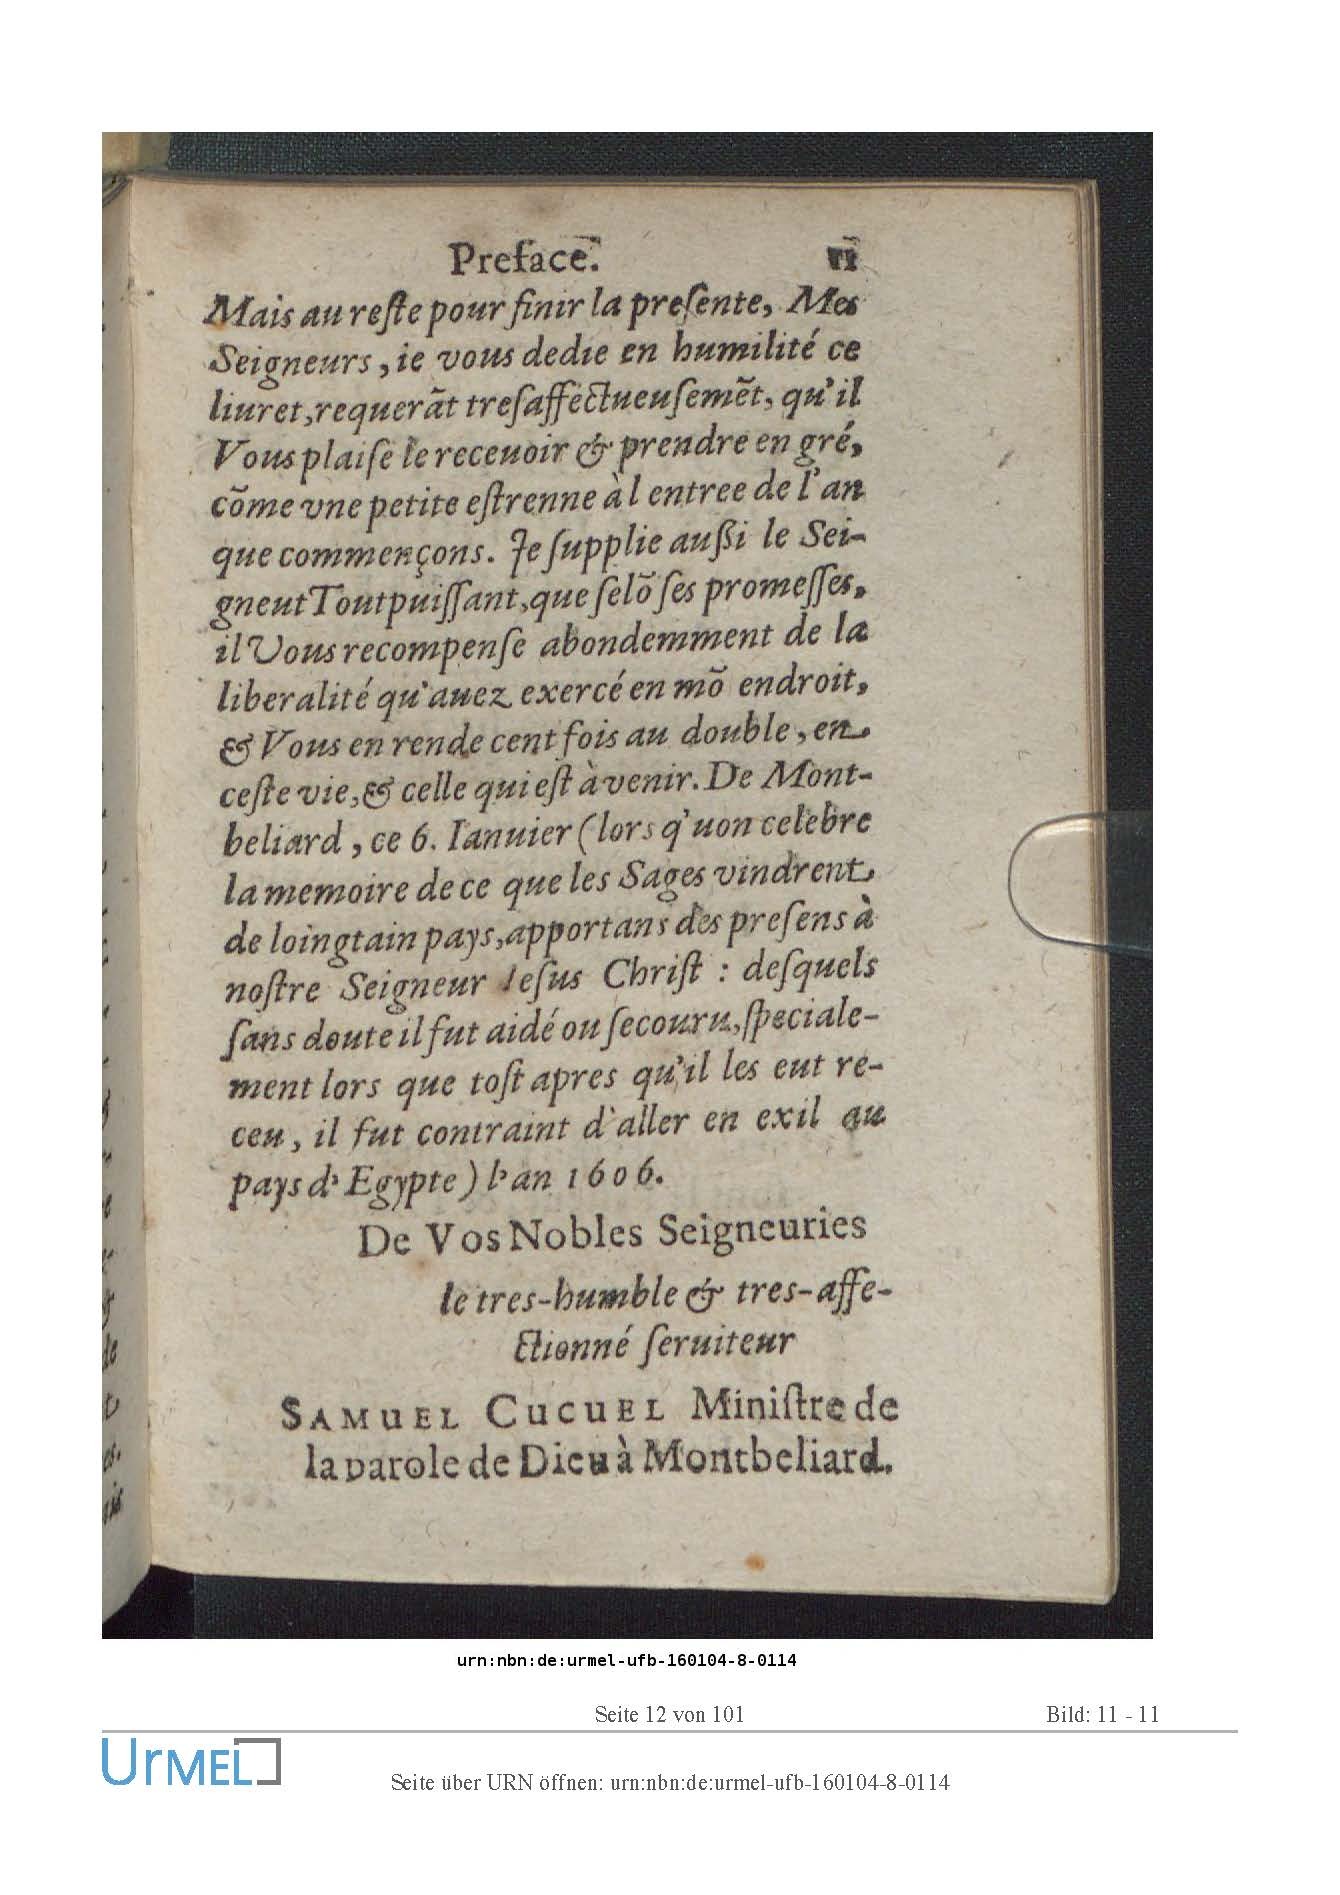 Preface. vi
Mais au reſte pour finir la preſente, Mes
Seigneurs, ie vous dedie en humilité ce
liuret, requerãt treſaffectueuſemẽt, qu'il
Vous plaiſe le receuoir & prendre en gré,
cõme vne petite eſtrenne à l entree de l'an
que commençons. Je ſupplie außi le Sei-
gneut Toutpuiſſant, que ſelõ ſes promeſſes,
il Vous recompenſe abondemment de la
liberalité qu'auez exercé en mõ endroit,
& Vous en rende cent fois au double, en
ceſte vie, & celle qui eſt à venir. De Mont-
beliard, ce 6. Ianuier (lors q'uon celebre
la memoire de ce que les Sages vindrent
de loingtain pays, apportans des preſens à
noſtre Seigneur Ieſus Chriſt : deſquels
ſans doute il fut aidé ou ſecouru, ſpeciale-
ment lors que toſt apres qu'il les eut re-
ceu, il fut contraint d'aller en exil au
pays d'Egypte) l'an 1606.
De Vos Nobles Seigneuries
le tres-humble & tres-affe-
ctionné ſeruiteur
SAMUEL CUCUEL Miniſtre de
la parole de Dieu à Montbeliard.
urn:nbn:de:urmel-ufb-160104-8-0114
Seite 12 von 101 Bild: 11 - 11
UrMEL
Seite über URN öffnen: urn:nbn:de:urmel-ufb-160104-8-0114